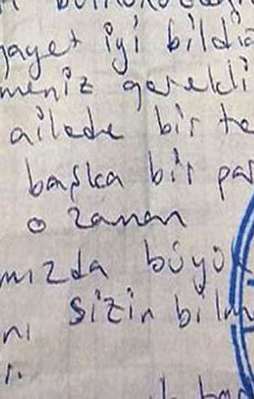 gayet iyi bildiğ
meniz gerekli
ailede bir te
başka bir par
o zaman
mızda büyü
sizin bilm
nı